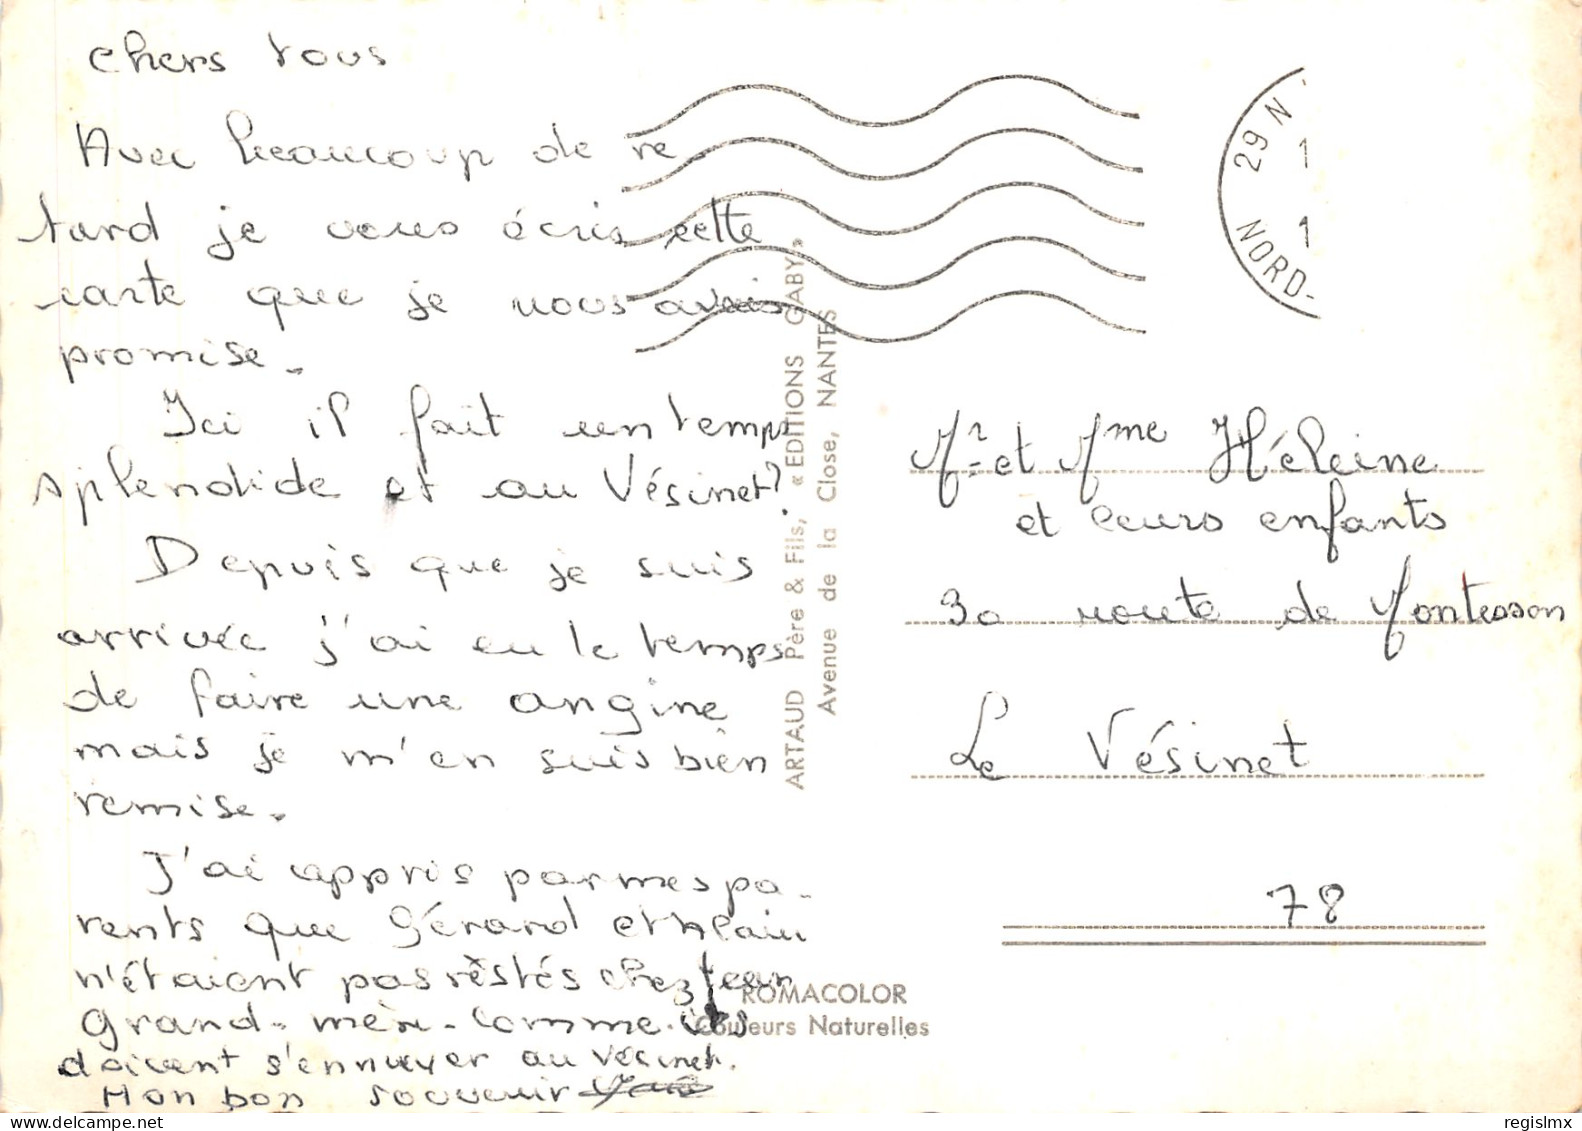 chers tous
Avec beaucoup de re
tard je vous écris cette
carte que je vous avais
promise.
Ici il fait un temps
splendide et au Vésinet?
Depuis que je suis
arrivée j'ai eu le temps
de faire une angine
mais je m'en suis bien
remise.
J'ai appris par mes pa-
rents que Gérard et Alain
n'étaient pas restés chez leur
grand-mère. Comme ils
doivent s'ennuyer au Vésinet.
Mon bon souvenir
ARTAUD Père & Fils, « EDITIONS GABY »
Avenue de la Close, NANTES
ROMACOLOR
Couleurs Naturelles
29 N
1
1
NORD-
Mr et Mme Héleine
et leurs enfants
30 route de Montesson
Le Vésinet
78
regislmx